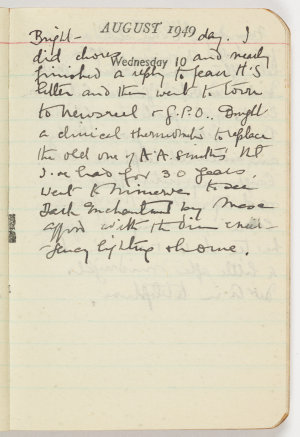 AUGUST 1949
Bright day. I
did chores and nearly
Wednesday 10
finished a reply to Jean H's
letter and then went to town
to newsreel & G.P.O. Bought
a clinical thermometer to replace
the old one of A.A. Smith's tht
I've had for 30 years.
Went to Minerva to see
Dark Enchantment by
with the dim emer-
gency lighting & home.